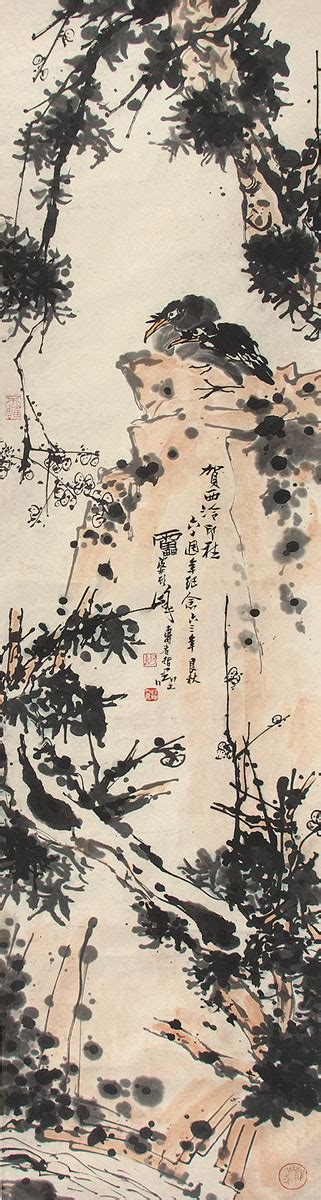 賀西泠印社
六十週年紀念六三年良秋
雷婆頭峰壽者指墨